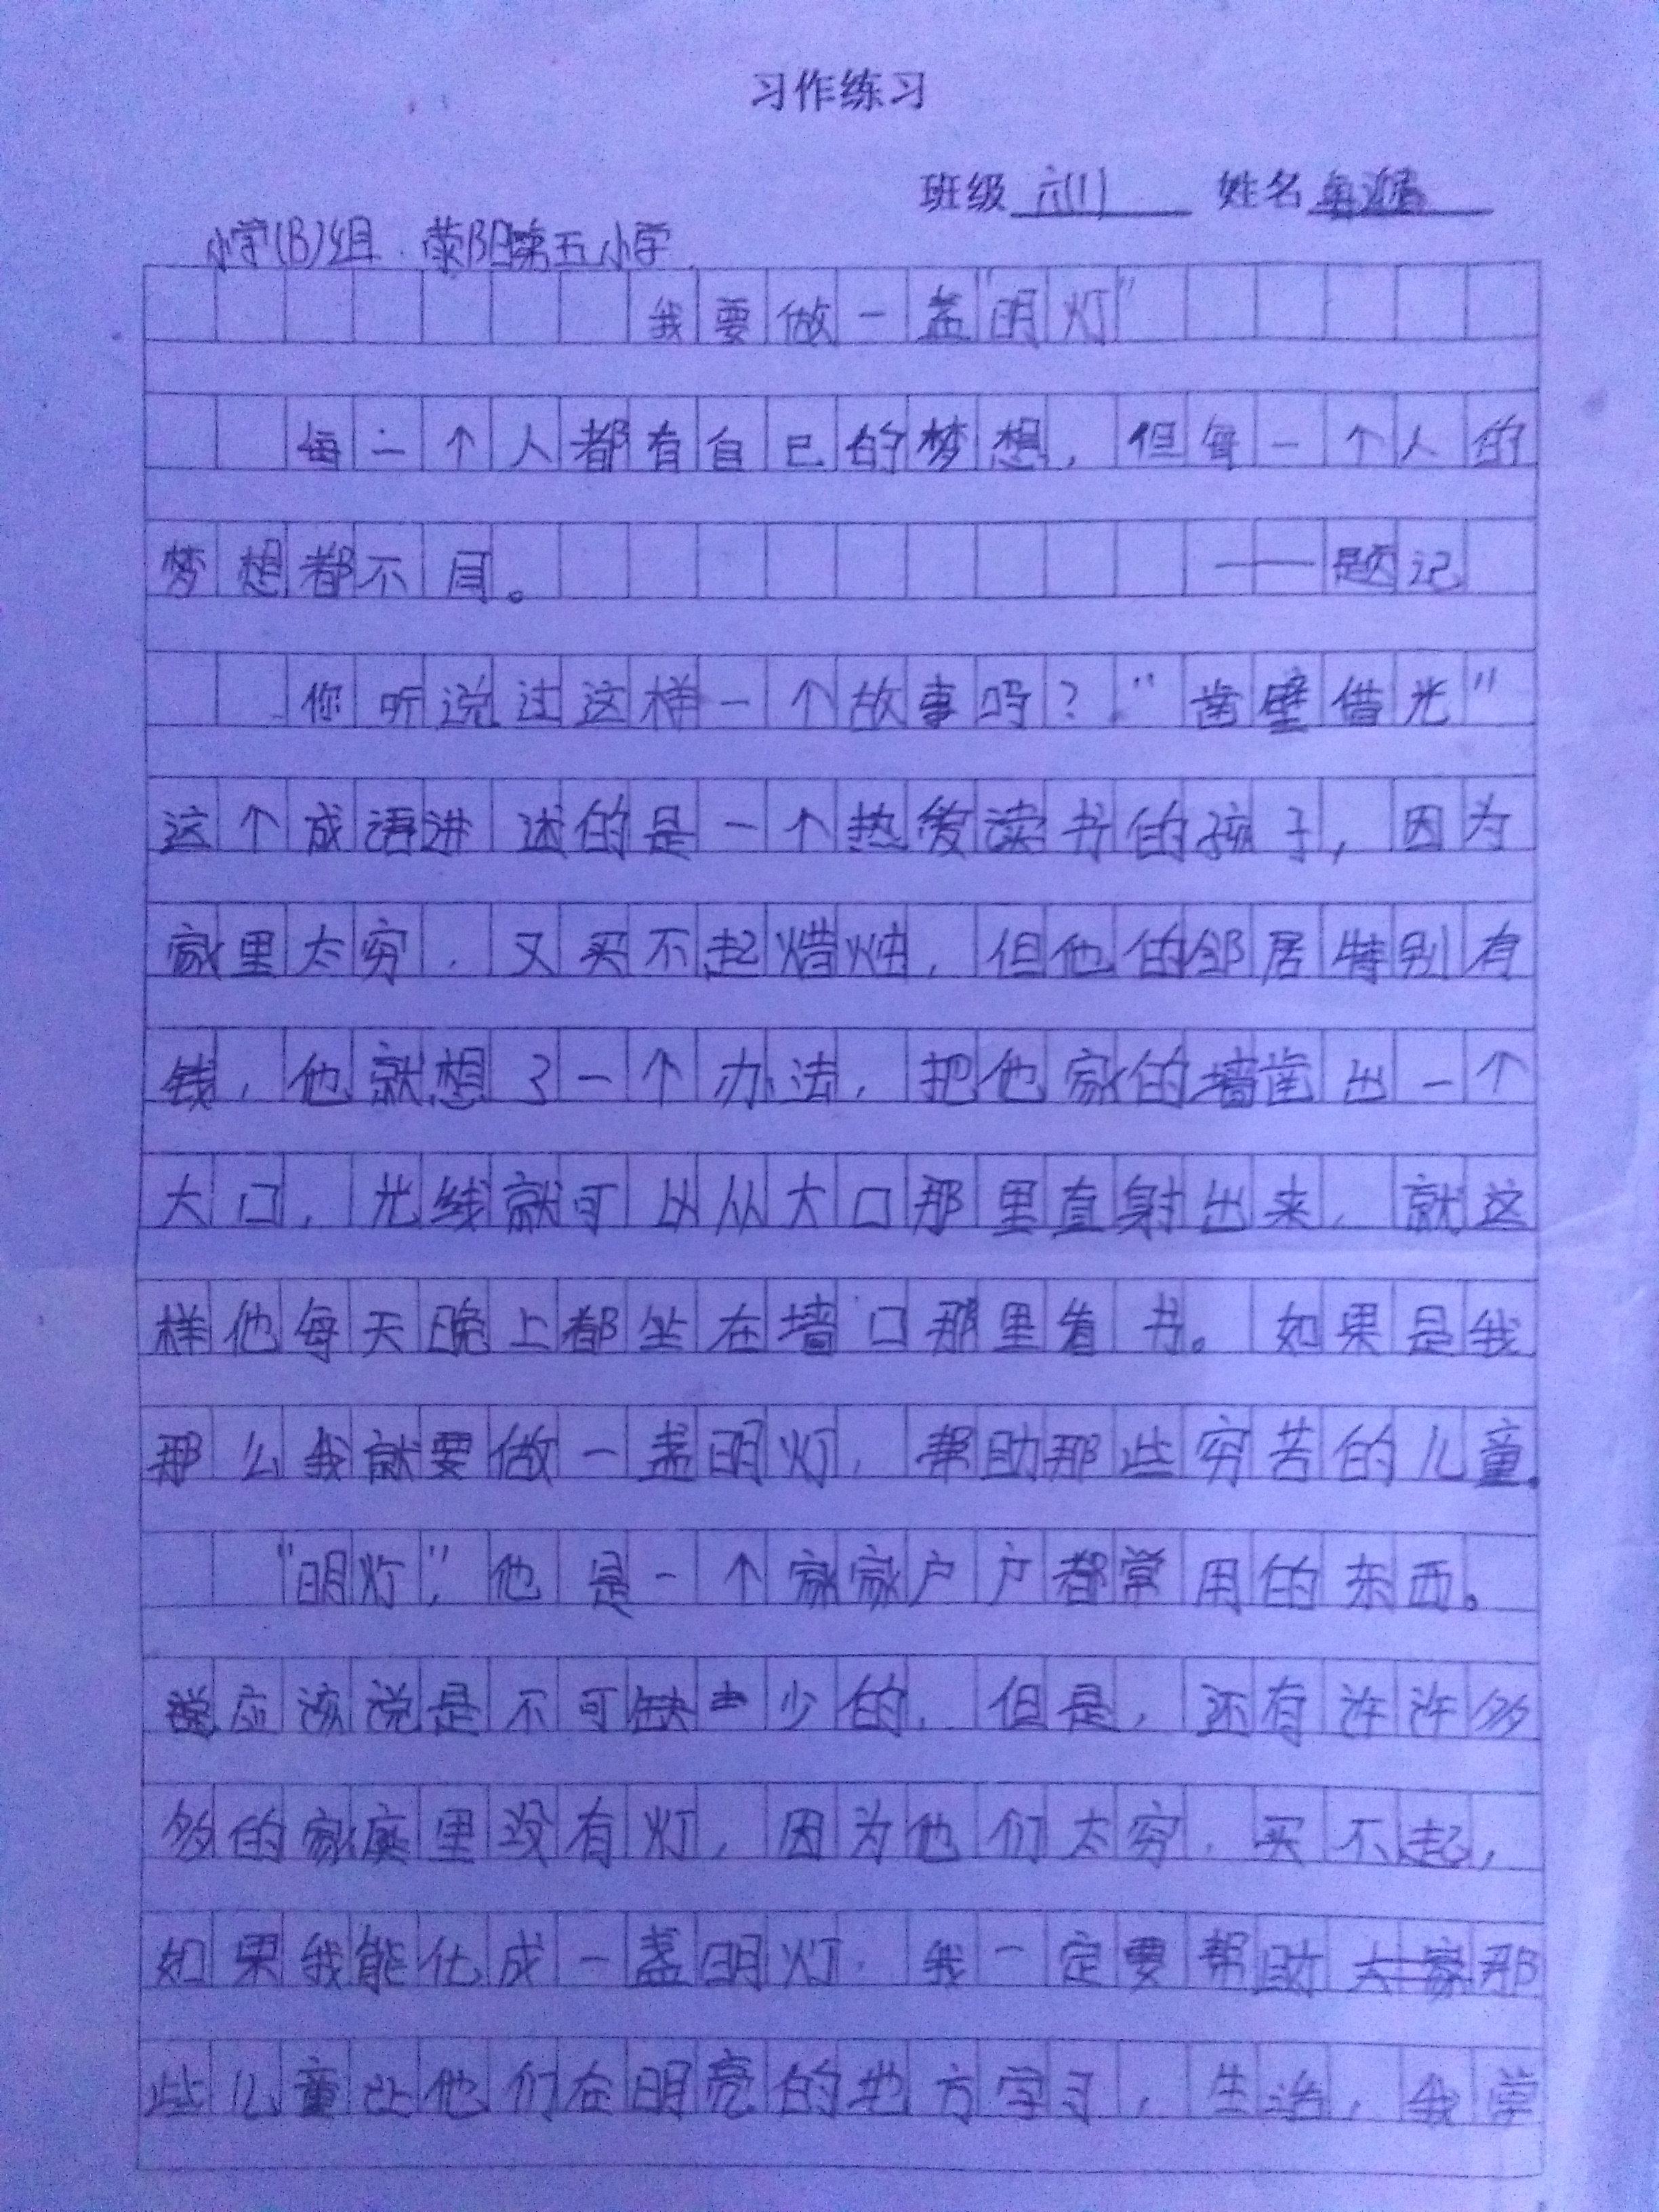 习作练习
班级 六(1) 姓名
小学(B)组 荥阳第五小学
我要做一盏"明灯"
每一个人都有自己的梦想，但每一个人的
梦想都不同。 ——题记
你听说过这样一个故事吗？"凿壁借光"
这个成语讲述的是一个热爱读书的孩子，因为
家里太穷，又买不起烛，但他的邻居特别有
钱，他就想了一个办法，把他家的墙凿出一个
大口，光线就可以从大口那里直射出来，就这
样他每天晚上都坐在墙口那里看书。如果是我
那么我就要做一盏明灯，帮助那些穷苦的儿童。
"明灯"，他是一个家家户户都常用的东西。
应该说是不可缺少的，但是，还有许许多
多的家庭里没有灯，因为他们太穷，买不起，
如果我能化成一盏明灯，我一定要帮助大家那
些儿童让他们在明亮的地方学习，生活，我常